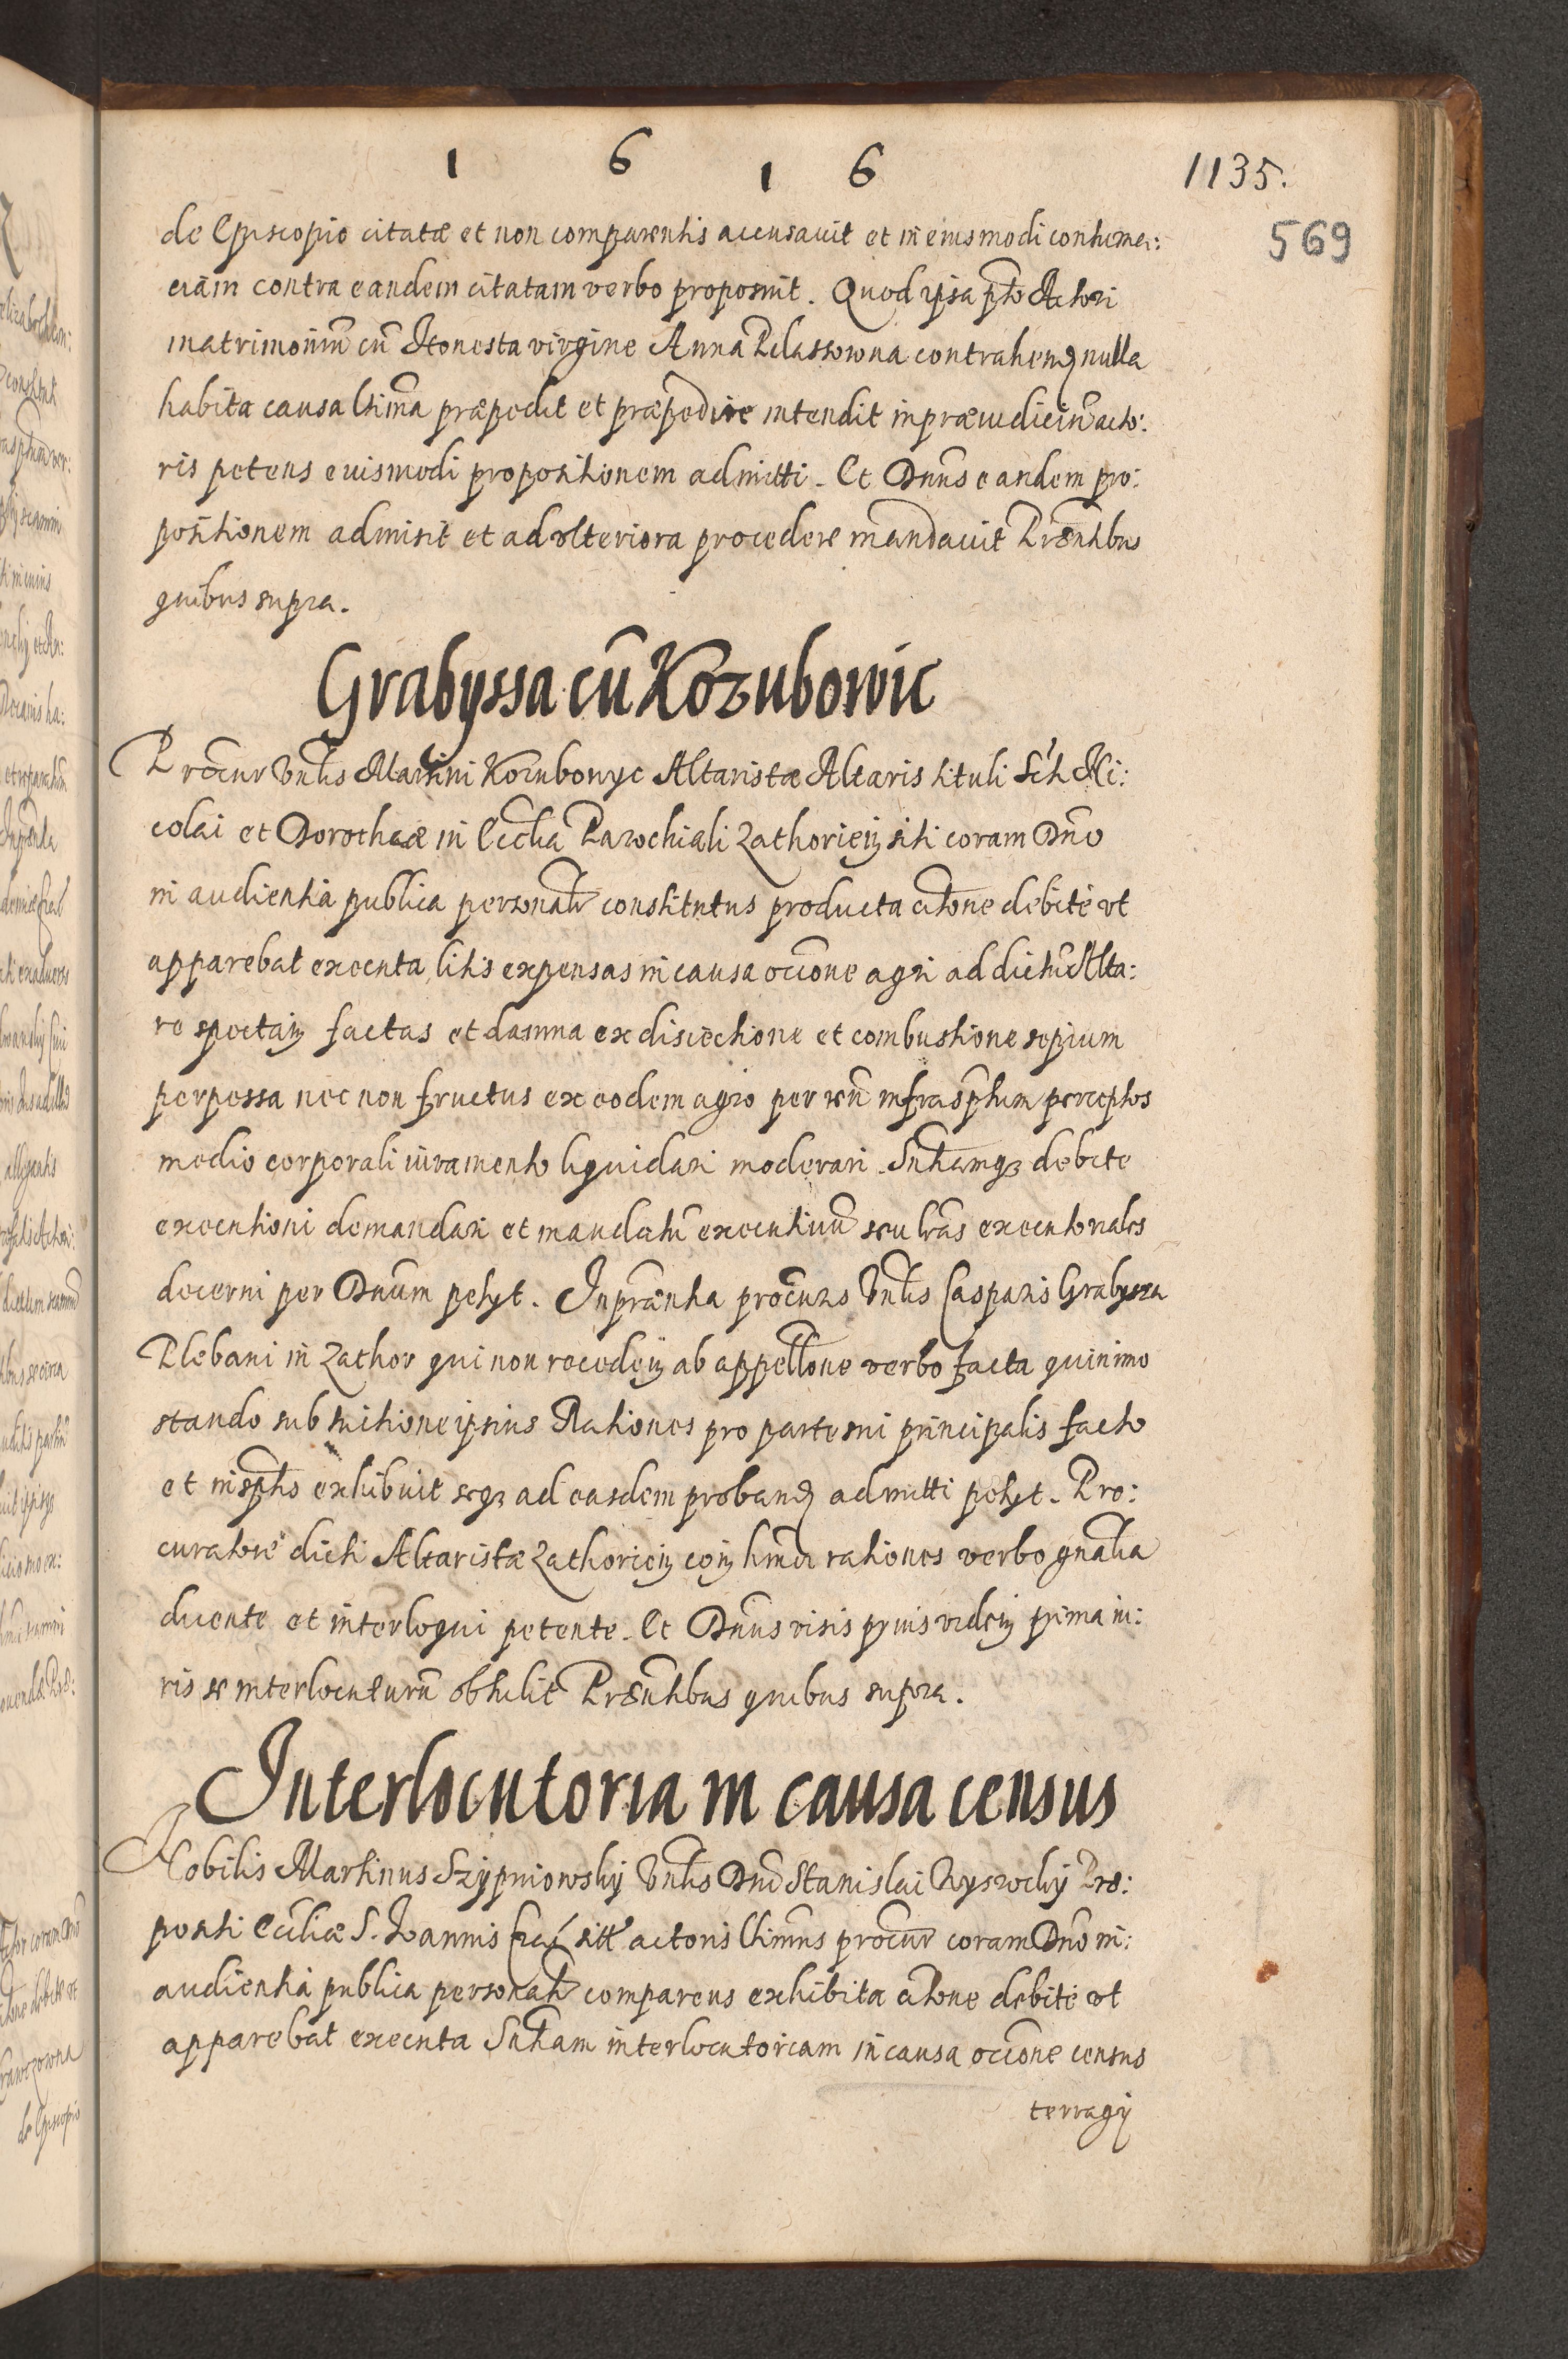 1 6 1 6
1135.
569
de Episcopio citatæ et non comparentis accusavit et in eiusmodi contuma:
ciam contra eandem citatam verbo proposuit. Quod ipsa pto Actori
matrimoniũ cũ Honesta virgine Anna contrahen nulla
habita causa ltima præpedit et præpedire intendit in præiudiciũ acto:
ris petens euismodi propositionem admitti. Et Dnus eandem pro:
positionem admisit et ad vlteriora procedere mandavit Præntibus
quibus supra.
Grabyssa cũ Kozubowic
Procur Vnlis Martini Kozubowyc Altaristæ Altaris tituli Scti Ni:
colai et Dorotheæ in Ecclia Parochiali Zathorien siti coram Dno
in audientia publica personalr constitutus producta citone debite vt
apparebat executa litis expensas in causa occione agri ad dictũ Alta:
re spectan factas et damna ex disiectione et combustione sepium
perpessa nec non fructus ex eodem agro per reũ infrascptum perceptos
medio corporali iuramento liquidari moderari Sntiamq3 debite
executioni demandari et mandatũ executiuũ seu lras executoriales
decerni per Dnum petyt. In præntia procuris Vnlis Casparis Grabyssa
Plebani in Zathor qui non receden ab appellone verbo facta quinimo
stando sub tuitione ipsius Rationes pro parte sui principalis facto
et in scptis exhibuit seq3 ad easdem proband admitti petyt. Pro:
curatore dicti Altaristæ Zathorien rationes verbo gnalia
ducente et interloqui petente. Et Dnus visis pruis viden prima iu:
ris se interlocuturũ obtulit Præntibus quibus supra.
Interlocutoria in causa census
Nobilis Martinus Szypniowsky Vnlis Dni Stanislai Wysocky Præ:
positi Eccliæ S. Ioannis actoris ltimus procur coram Dno in:
audientia publica personalr comparens exhibita citone debite vt
apparebat executa Sntiam interlocutoriam in causa occione census
terragy